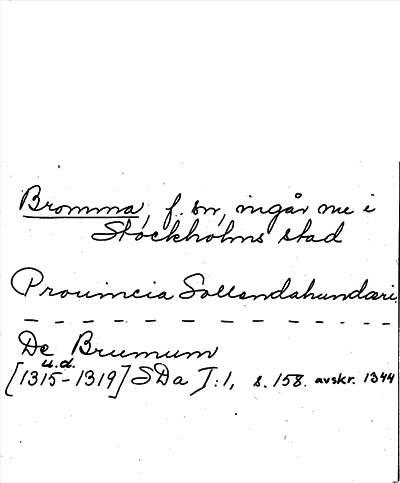 Bromma, f. sn, ingår nu i
Stockholms stad
Prouincia Sollendahundæri
De Brumum
u.d.
[1315-1319] SDa I:1, s. 158. avskr. 1344